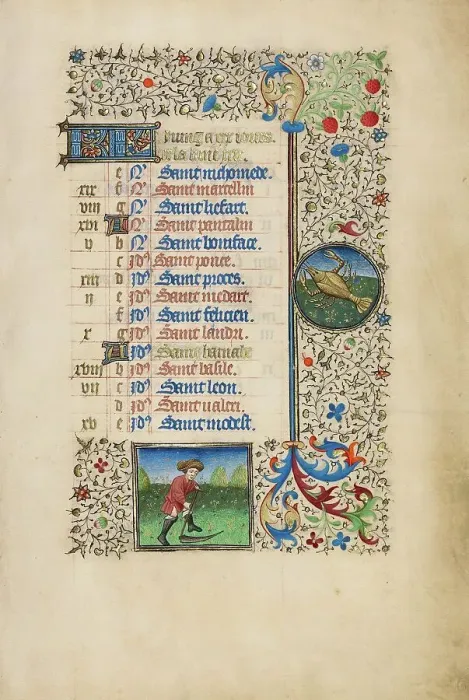 e N Saint nichomede.
xix f N Saint marcellin
viii g N Saint liefart.
xvi A N Saint pantalin
v b N Saint boniface.
c Id Saint ponce.
xiii d Id Saint proces.
ii e Id Saint medart.
f Id Saint felicien.
x g Id Saint landri.
A Id Saint barnabe
xviii b Id Saint basile.
vii c Id Saint leon.
d Id Saint
xv e Id Saint modest.